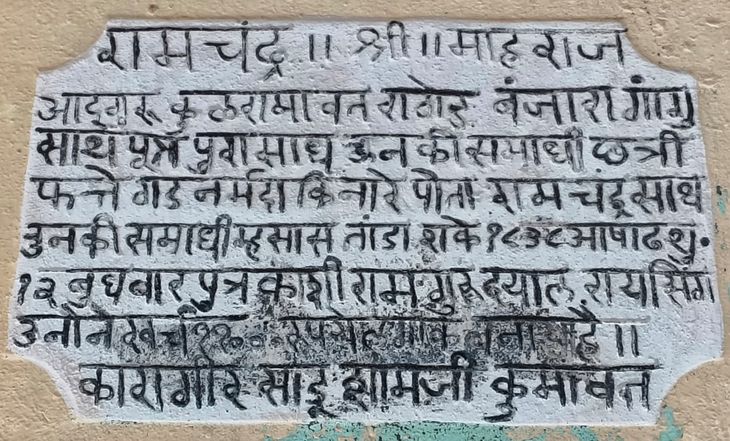 रामचंद्र ॥ श्री ॥ माहराज
आदगुरू कुलरामावत राठोड बंजारा गांगु
साध पुत्र पुरासाध उनकी समाधी छत्री
फत्तेगड नर्मदा किनारे पौता रामचंद्र साध
उनकी समाधी म्हसास तांडा शके १८३८ आषाढ शु.
१३ बुधबार पुत्र काशीराम गुरूदयाल रायसिंग
उनोने खर्च है ॥
कारागीर साडू शामजी कुमावत